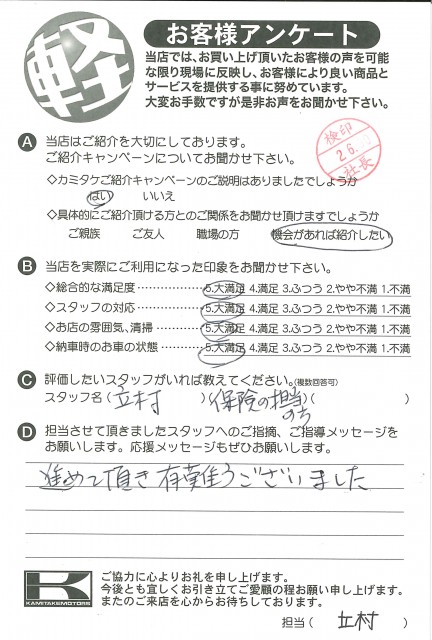 軽
お客様アンケート
当店では、お買い上げ頂いたお客様の声を可能
な限り現場に反映し、お客様により良い商品と
サービスを提供する事に努めています。
大変お手数ですが是非お声をお聞かせ下さい。
A 当店はご紹介を大切にしております。
ご紹介キャンペーンについてお聞かせ下さい。
検印
26.
社長
◇カミタケご紹介キャンペーンのご説明はありましたでしょうか
はい いいえ
◇具体的にご紹介頂ける方とのご関係をお聞かせ頂けますでしょうか
ご親族 ご友人 職場の方 機会があれば紹介したい
B 当店を実際にご利用になった印象をお聞かせ下さい。
◇総合的な満足度 5.大満足 4.満足 3.ふつう 2.やや不満 1.不満
◇スタッフの対応 5.大満足 4.満足 3.ふつう 2.やや不満 1.不満
◇お店の雰囲気、清掃 5.大満足 4.満足 3.ふつう 2.やや不満 1.不満
◇納車時のお車の状態 5.大満足 4.満足 3.ふつう 2.やや不満 1.不満
C 評価したいスタッフがいれば教えてください。(複数回答可)
スタッフ名(立村 )(保険の担当 )( )
D 担当させて頂きましたスタッフへのご指摘、ご指導メッセージを
お願いします。応援メッセージもぜひお願いします。
進めて頂き有難うございました
K
KAMITAKEMOTORS
ご協力に心よりお礼を申し上げます。
今後とも宜しくお引き立てご愛顧の程お願い申し上げます。
またのご来店を心からお待ちしております。
担当( 立村 )